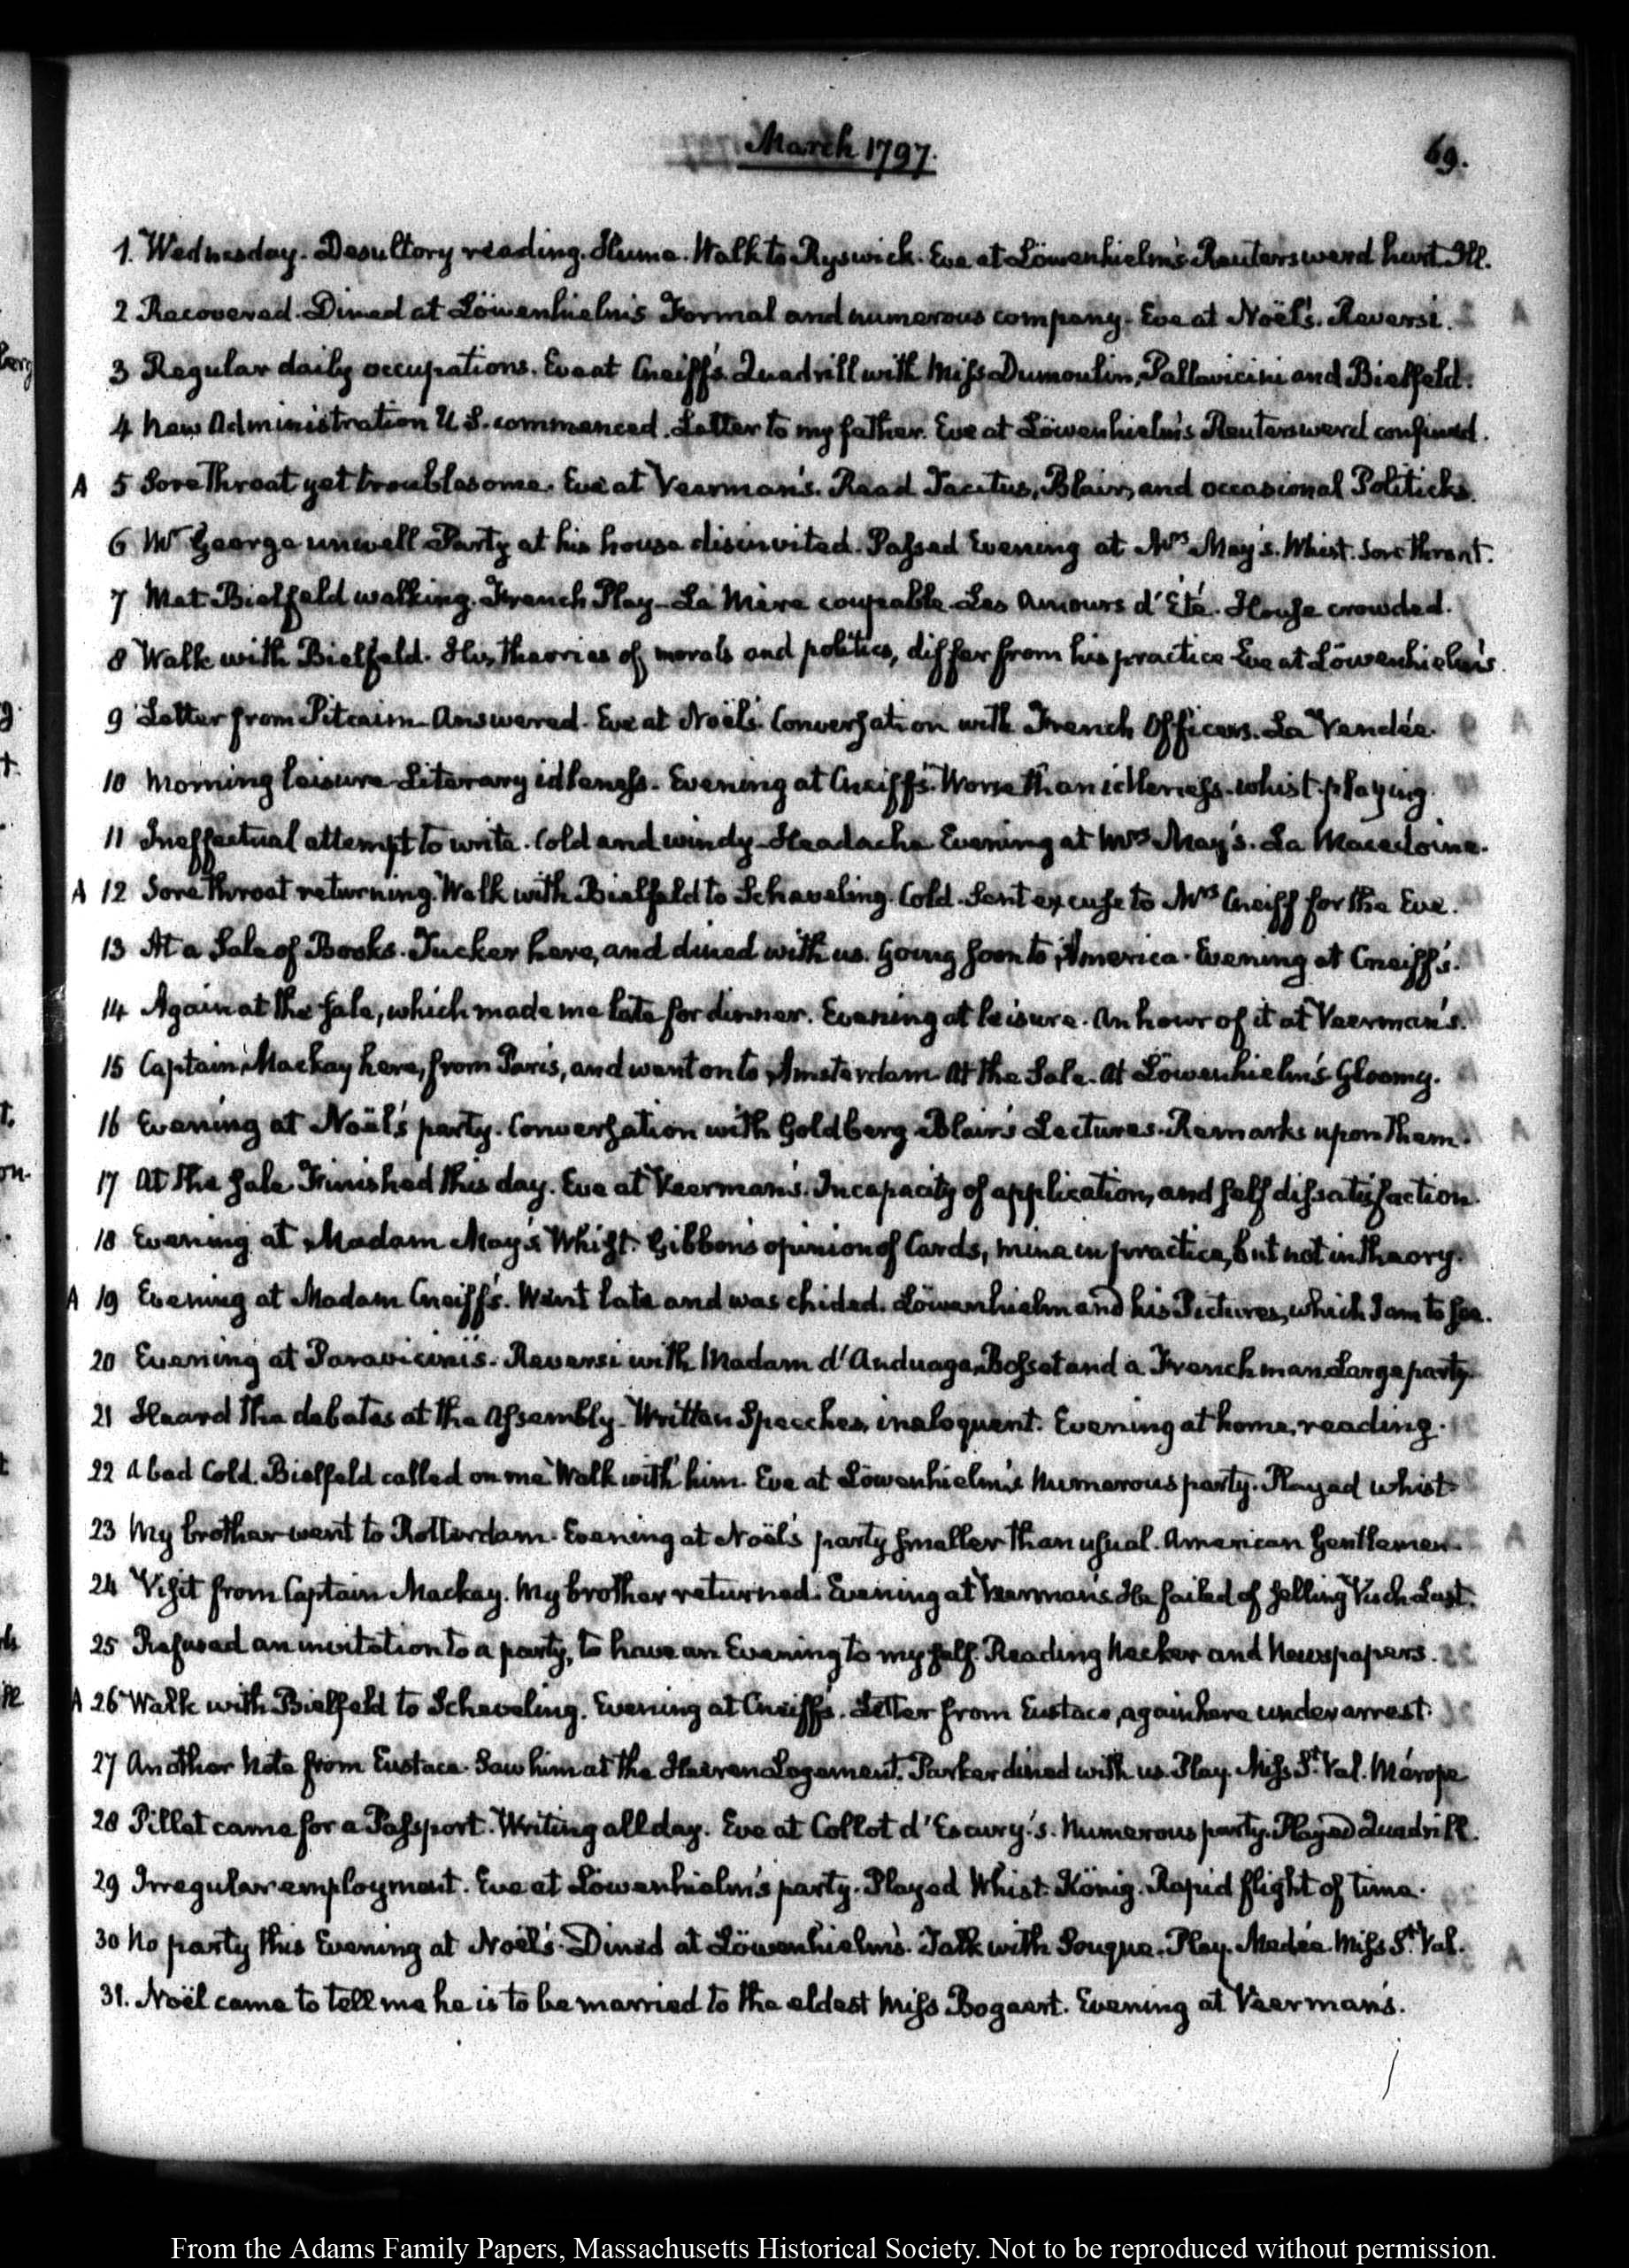 March 1797.
69.
1. Wednesday. Desultory reading. Hume. Walk to Ryswick. Eve at Löwenhielm's Reuterswerd hurt. Ill.
2 Recovered. Dined at Löwenhielm's Formal and numerous company. Eve at Noël's. Reversi.
3 Regular daily occupations. Eve at Cneiff's. Quadrill with Miss Dumoulin, Pallavicini and Bielfeld.
4 New Administration U.S. commenced. Letter to my father. Eve at Löwenhielm's Reuterswerd confined.
A 5 Sore throat yet troublesome. Eve at Veerman's. Read Tacitus, Blair, and occasional Politicks.
6 Mr George unwell Party at his house disinvited. Passed Evening at Mrs May's. Whist. Sore throat.
7 Met Bielfeld walking. French Play. La Mère coupable. Les Amours d'Été. House crowded.
8 Walk with Bielfeld. His theories of morals and politics, differ from his practice. Eve at Löwenhielm's.
9 Letter from Pitcairn. Answered. Eve at Noël's. Conversation with French Officers. La Vendée.
10 Morning leisure. Literary idleness. Evening at Cneiff's. Worse than idleness. whist-playing.
11 Ineffectual attempt to write. Cold and windy. Headache. Evening at Mrs May's. La Macedoine.
A 12 Sore throat returning. Walk with Bielfeld to Scheveling. Cold. Sent excuse to Mrs Cneiff for the Eve.
13 At a Sale of Books. Tucker here, and dined with us. Going soon to America. Evening at Cneiff's.
14 Again at the sale, which made me late for dinner. Evening at leisure. An hour of it at Veerman's.
15 Captain Mackay here, from Paris, and went on to Amsterdam. At the Sale. At Löwenhielm's Gloomy.
16 Evening at Noël's party. Conversation with Goldberg. Blair's Lectures. Remarks upon them.
17 At the sale. Finished this day. Eve at Veerman's. Incapacity of application, and self dissatisfaction.
18 Evening at Madam May's. Whist. Gibbon's opinion of Cards, mine in practice, but not in theory.
A 19 Evening at Madam Cneiff's. Went late and was chided. Löwenhielm and his Pictures, which I am to see.
20 Evening at Paravicini's. Reversi with Madam d'Anduaga, Bosset and a Frenchman. Large party.
21 Heard the debates at the Assembly. Written Speeches, ineloquent. Evening at home, reading.
22 A bad Cold. Bielfeld called on me Walk with him. Eve at Löwenhielm's Numerous party. Played whist
23 My brother went to Rotterdam. Evening at Noël's party smaller than usual. American Gentlemen.
24 Visit from Captain Mackay. My brother returned. Evening at Veerman's. He failed of selling Visch Lust.
25 Refused an invitation to a party, to have an Evening to myself. Reading Necker and Newspapers.
A 26 Walk with Bielfeld to Scheveling. Evening at Cneiff's. Letter from Eustace, again here under arrest.
27 Another Note from Eustace. Saw him at the Heeren Logement. Parker dined with us. Play. Miss St. Val. Mérope
28 Pillet came for a Passport. Writing all day. Eve at Collot d'Escury's. Numerous party. Played Quadrill.
29 Irregular employment. Eve at Löwenhielm's party. Played Whist. König. Rapid flight of time.
30 No party this Evening at Noël's. Dined at Löwenhielm's. Talk with Souque. Play. Medée. Miss St. Val.
31. Noël came to tell me he is to be married to the eldest Miss Bogaert. Evening at Veerman's.
From the Adams Family Papers, Massachusetts Historical Society. Not to be reproduced without permission.